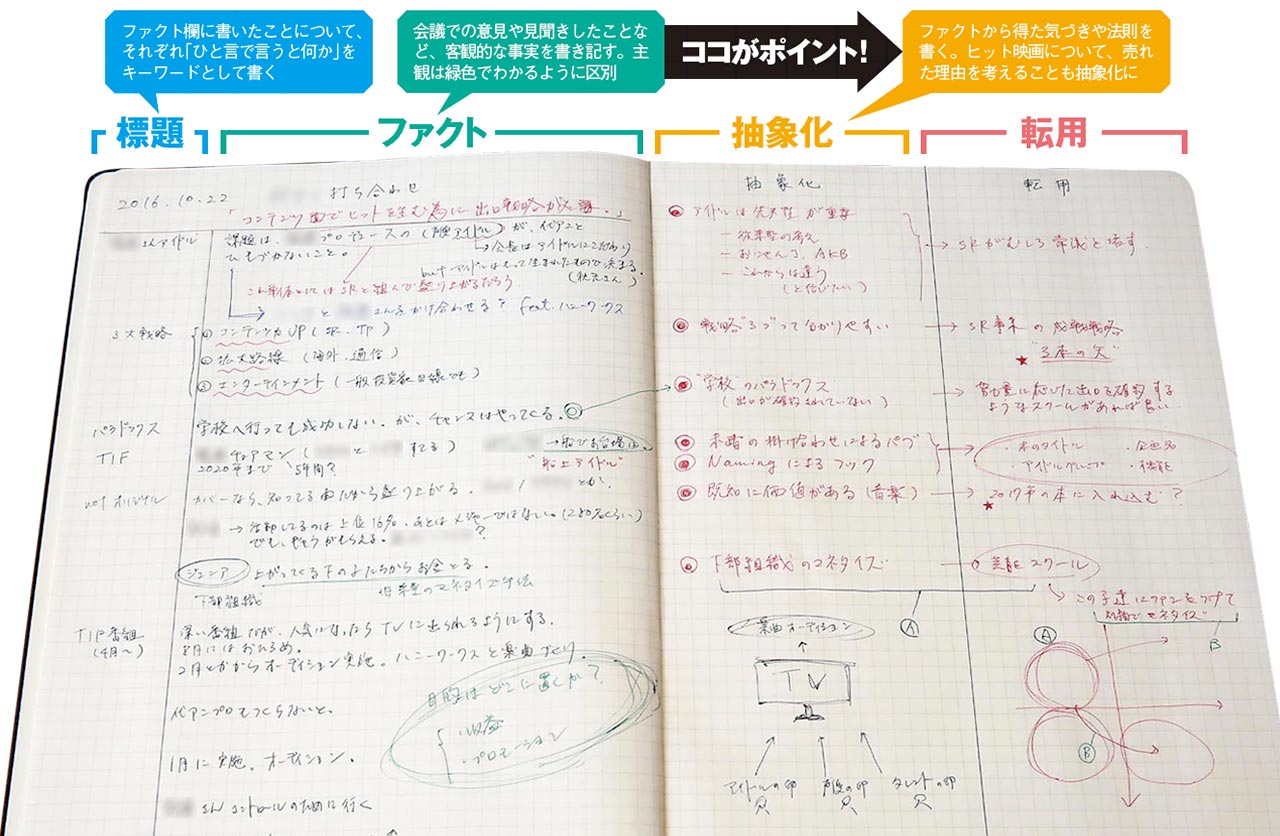 ファクト欄に書いたことについて、
それぞれ「ひと言で言うと何か」を
キーワードとして書く
会議での意見や見聞きしたことな
ど、客観的な事実を書き記す。主
観は緑色でわかるように区別
ココがポイント!
ファクトから得た気づきや法則を
書く。ヒット映画について、売れ
た理由を考えることも抽象化に
標題
ファクト
抽象化
転用
2016.10.22
打ち合わせ
「コンテンツ面でヒットを生む為に出口戦略が必要。」
さんアイドル
課題は、プロデュースの(声優アイドル)が、代アニと
ひもづかないこと。
→会長はアイドルにこだわり
but アイドルはもって生まれたもので決まる。
(秋元さん)
これ単体としてはSRと組んで盛り上がるだろう
と さんをかけ合わせる? feat.ハニーワークス
3大戦略
① コンテンツ力UP
② 拡大路線(海外、通信)
③ エンターテインメント(一般投資家目線でも)
パラドックス
学校へ行っても成功しない。が、チャンスはやってくる。◎
TIF
チェアマン(
2020年まで 5年間?
"船上アイドル"
not オリジナル
カバーなら、知ってる曲だから盛り上がる。
/ とか。
→ 活動してるのは上位16%、あとはメジャーではない。
でも、もらえる。 ?
ジュニア
上がってくる下の子たちからお金とる。
下部組織
マネタイズ手法
TIF番組
(4月〜)
深い番組だが、人気になったらTVに出られるようにする。
8月にはおひろめ。
2月とかからオーディション実施。ハニーワークスと楽曲づくり。
目的はどこに置くか?
・収益
・プロモーション
代アニプロもつくらないと。
1月に実施。オーディション。
さん コントロールのために行く
抽象化
転用
アイドルは先天性が重要
― 従来型の考え
― おにゃん子、AKB
― これからは違う
(と信じたい)
→ SRがむしろ常識を壊す
戦略"3つ"って分かりやすい
→ SR事業の成功戦略
★"3本の矢"
"学校"のパラドックス
(出口が確約されていない)
→ 努力量に応じた出口を確約する
ようなスクールがあれば良い
未踏の掛け合わせによるパブ
Namingによるフック
・本のタイトル
・企画名
・アイドルグループ
・機能
既知に価値がある(音楽)
→ 2017年の本に入れ込む?
★
下部組織のマネタイズ
→ 芸能スクール
この子達にファンをつけて
でマネタイズ
A
B
楽曲オーディション
TV
アイドルの卵
声優の卵
タレントの卵
A
B